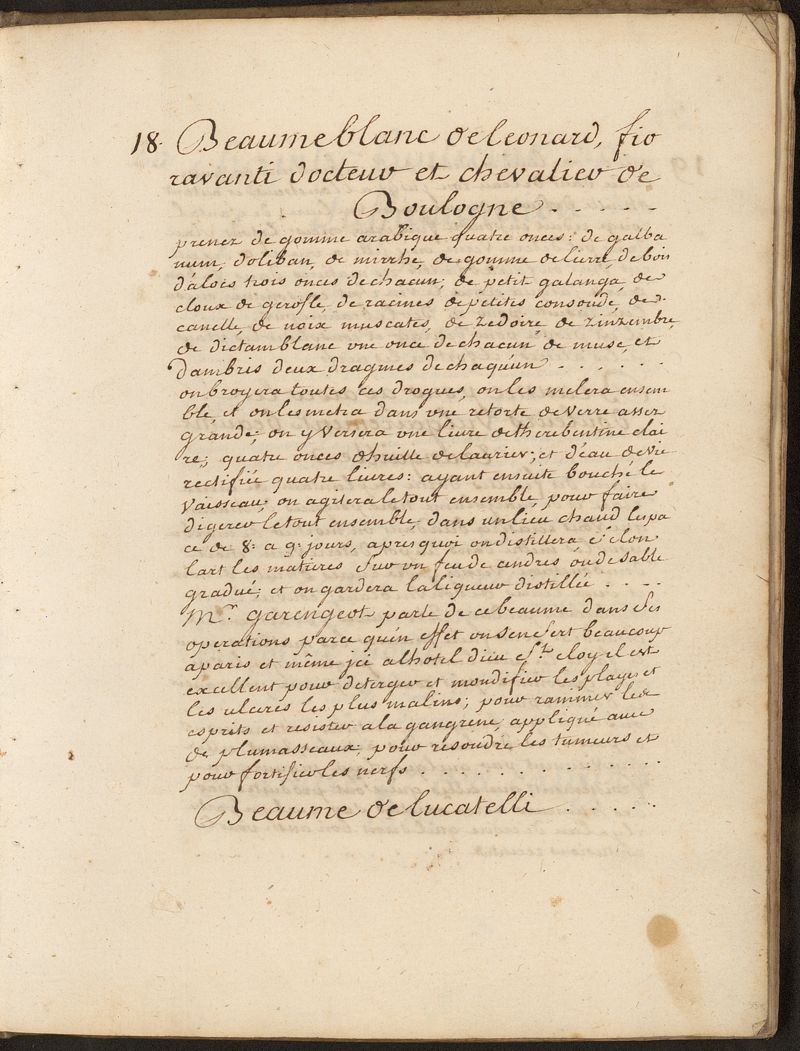 18. Beaume blanc de leonard, fio
ravanti docteur et chevalier de
Boulogne . - - - -
prenez de gomme arabique quatre onces : de galba
num, doliban, de mirrhe, de gomme de lierre, de bois
d'aloës trois onces de chacun; de petit galanga, de
cloux de gerofle, de racines de petites consoude, de
canelle, de noix muscates, de zedoire, de zinzembre,
de dictamblanc une once de chacun, de musc, et
d'ambris deux dragmes de chaquun . - - - - -
on broyera toutes ces drogues, on les melera ensem
ble, et on les metra dans une retorte de verre assez
grande; on y versera une livre de therebentine clai
re; quatre onces d'huille de laurier; et d'eau de vie
rectifiée quatre livres : ayant ensuite bouché le
vaisseau, on agitera le tout ensemble, pour faire
digerer le tout ensemble, dans un lieu chaud lespa
ce de 8. a 9. jours, apres quoi on distillera selon
lart les matieres sur un feu de cendres ou de sable
gradué; et on gardera la liqueur distillée . - - -
Mr. garengeot parle de ce beaume dans ses
operations parce qu'en effet on sen sert beaucoup
a paris et même ici a lhotel dieu St. eloy il est
excellent pour deterger et mondifier les playes et
les ulceres les plus malins; pour ranimer les
esprits et resister a la gangrene, appliqué avec
de plumasseaux, pour resoudre les tumeurs et
pour fortifier les nerfs . . . . . . . . .
Beaume de lucatelli . - - - -